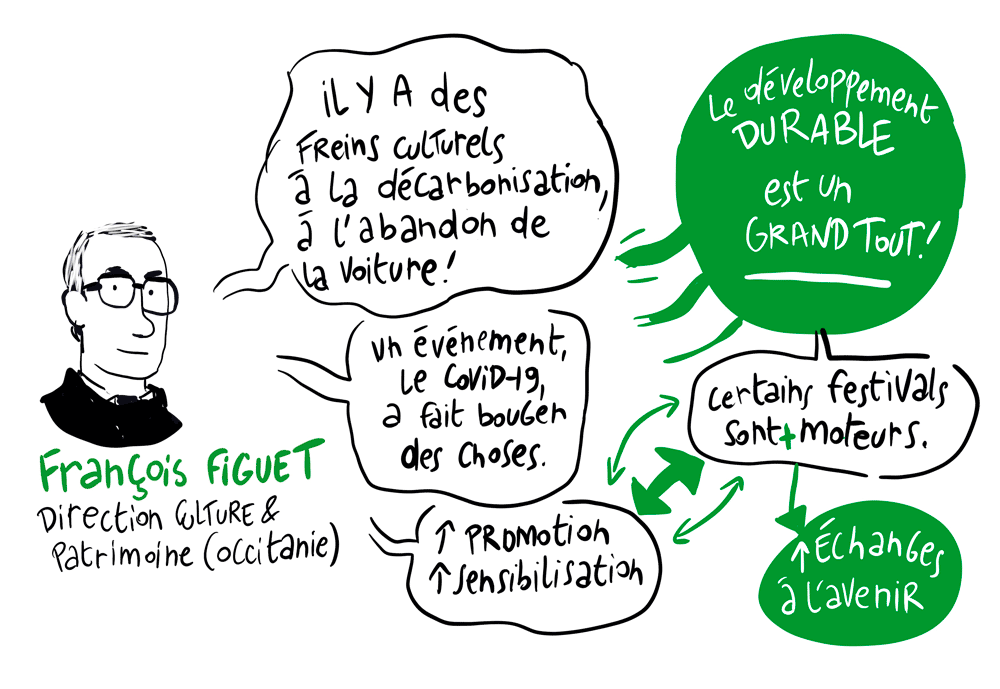 iL Y A des
FREINS CULTURELS
à la décarbonisation,
à l'abandon de
la voiture !
un événement,
le COVID-19,
a fait bouger
des choses.
↑ PROMOTION
↑ sensibilisation
François FIGUET
Direction CULTURE &
Patrimoine (occitanie)
Le développement
DURABLE
est un
GRAND TOUT !
certains festivals
sont + moteurs.
↑ Échanges
à l'avenir